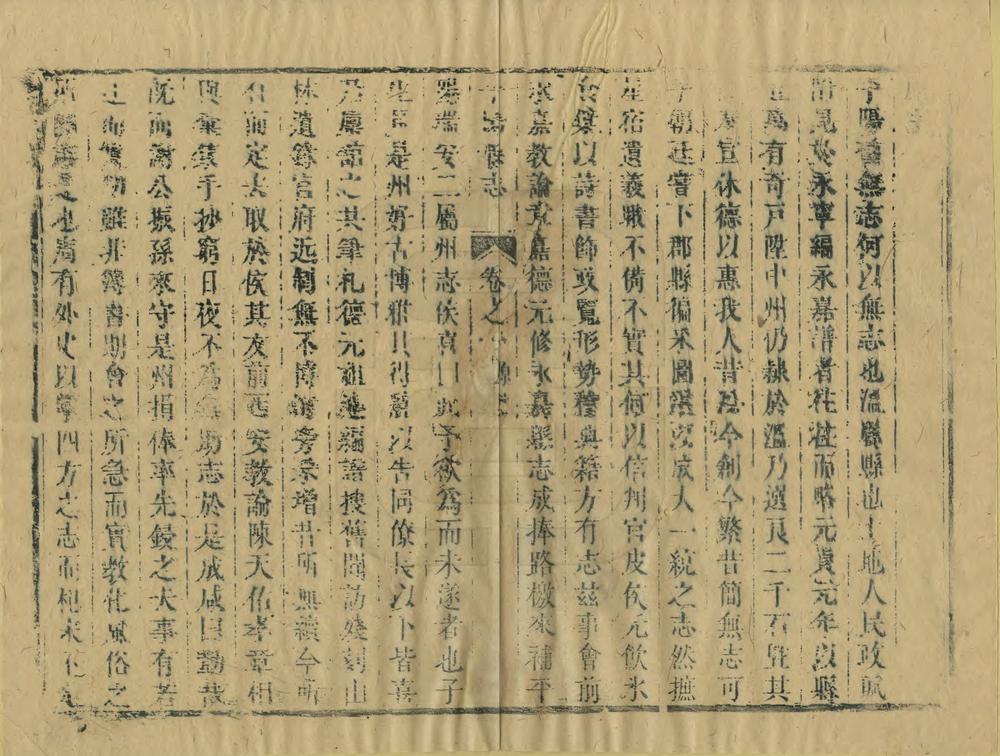 平陽舊無志何以無志也溫縣縣也土地人民政賦
附見於永寧編永嘉譜者往往而略元貞元年以縣
萬有奇戶陞中州仍隸於溫乃選良二千石暨其
宣休德以惠我人昔溫今創今繁昔簡無志可
乎朝廷嘗下郡縣徧采圖諜以成大一統之志然撫
星宿遺義娥不備不實其何以信州官皮侯元飲氷
食櫱以詩書飾或覽形勢稽典籍方有志茲事會前
永嘉教諭章嘉德元修永嘉縣志成捧路檄來補平
平陽縣志 卷之
瑞安二屬州志侯喜曰此予欲爲而未遂者也子
是州好古博雅具得以告同僚長以下皆喜
乃廩餼之共筆札德元祖述編譜搜舊聞訪殘刻山
林遺錄官府近制無不博旁采增昔所無續今所
有而定去取於侯其友前西安教諭陳天佑李章相
與棄袁手抄窮日夜不爲志於是成咸曰勤哉
旣而謝公振孫來守是州指俸率先鋟之夫事有若
迂而實切雖非簿書期會之所急而實教化風俗之
也周有外史以掌四方之志而杞宋